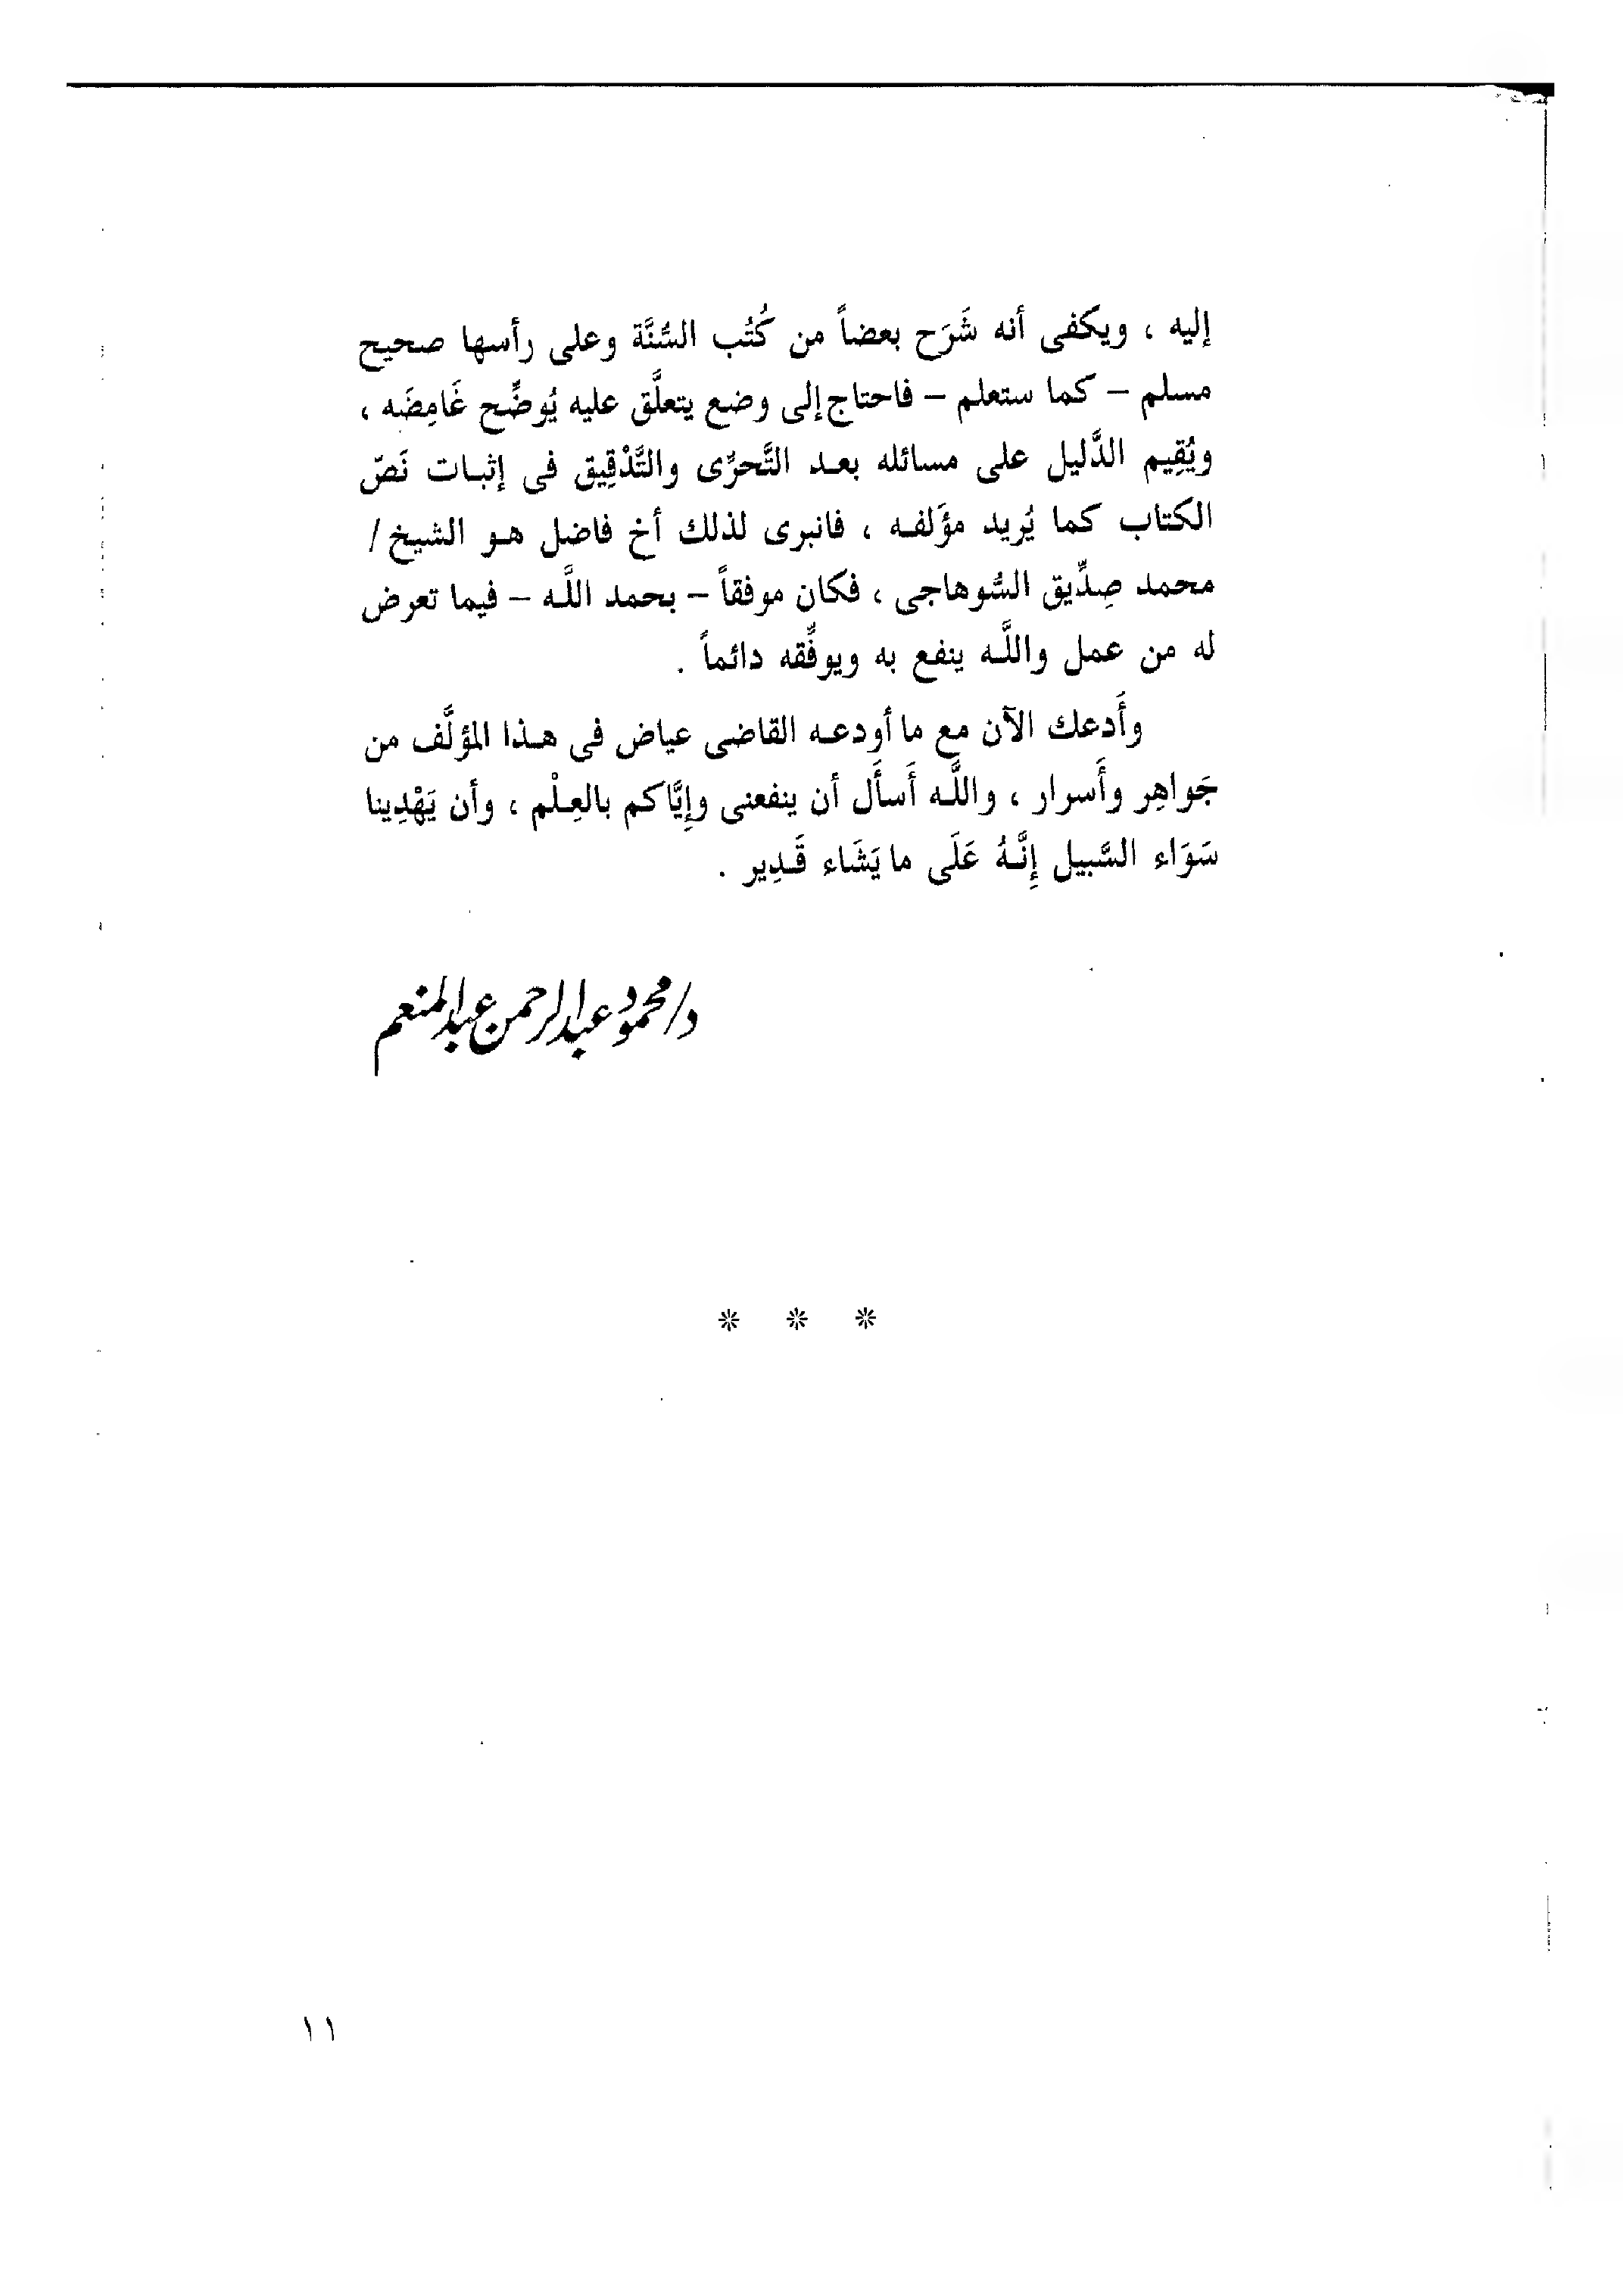 إليه ، ويكفى أنه شَرَح بعضاً من كُتُب السُّنَّة وعلى رأسها صحيح
مسلم – كما ستعلم – فاحتاج إلى وضع يتعلَّق عليه يُوضِّح غَامِضَه ،
ويُقِيم الدَّليل على مسائله بعـد التَّحرِّى والتَّدْقِيق فى إثبـات نَصّ
الكتاب كما يُريد مؤَلفـه ، فانبرى لذلك أخ فاضل هـو الشيخ /
محمد صِدِّيق السُّوهاجى ، فكان موفقاً – بحمد اللَّـه – فيما تعرض
له من عمل واللَّـه ينفع به ويوفِّقه دائماً .
وأَدعك الآن مع ما أودعـه القاضى عياض فى هـذا المؤلَّف من
جَواهِر وأَسرار ، واللَّـه أَسأَل أن ينفعنى وإِيَّاكم بالعِـلْم ، وأن يَهْدِينا
سَوَاء السَّبيل إِنَّـهُ عَلَى ما يَشَاء قَـدِير .
د/محمود عبد الرحمن عبد المنعم
* * *
١١